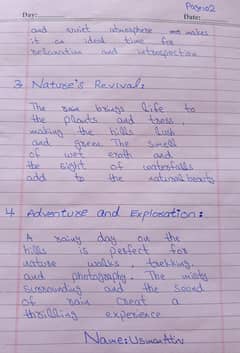 Page:02
Day: Date:
and quiet atmosphere makes
it an ideal time for
relaxation and introspection
3 Nature's Revival:
The rain brings life to
the plants and trees
making the hills lush
and green The smell
of wet erath and
the sight of waterfalls
add to the natural beauty
4 Adventure and Exploration:
A rainy day on the
hills is perfect for
nature walks, trekking,
and photography. The misty
surrounding and the sooed
of rain creat a
thrilling experence
Name: Usman Ativ